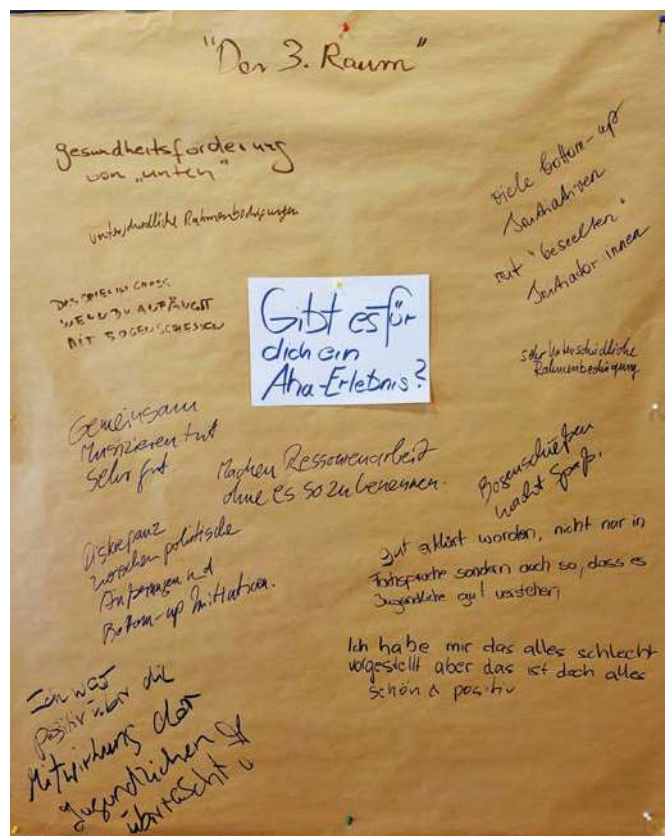 "Der 3. Raum"
gesundheitsförderung
von „unten"
unterschiedliche Rahmenbedingungen
viele Bottom-up
Initiativen
mit "beseelten"
Initiator:innen
DAS SPIEL IST CHAOS
WENN DU ANFÄNGST
MIT BOGENSCHIESSEN
Gibt es für
dich ein
Aha-Erlebnis?
sehr unterschiedliche
Rahmenbedingung
Gemeinsam
Musizieren tut
sehr gut
Machen Ressourcenarbeit
ohne es so zu benennen.
Bogenschießen
macht Spaß.
Diskrepanz
zwischen politische
und
Bottom-up Initiativen.
gut erklärt worden, nicht nur in
Fachsprache sondern auch so, dass es
Jugendliche gut verstehen
Ich habe mir das alles schlecht
vorgestellt aber das ist doch alles
schön & positiv
Ich war
positiv über die
Mitwirkung der
Jugendlichen
überrascht